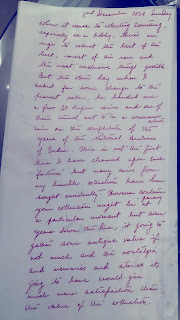 2nd December 2018 Sunday
When it comes to collecting something,
especially as a hobby, there's an
urge to collect the best of the
best, most of the rare and
the most exclusive things possible
But this other day when I
asked for some change to the
fruit seller, he handed me
a few 10 Rupee coins and one of
them turned out to be a commemor
ation on the completion of 125
years of the National Archives
of India. This is not the first
time I have chanced upon such
fortunes but many coins from
my humble collection have been
sought suddenly. However certain
your collection might be going
a particular moment but some
years down the line, it going to
gather some antique value if
not much and the nostalgia
and memories and stories its
going to have would give
much more satisfaction than
the value of the collection.